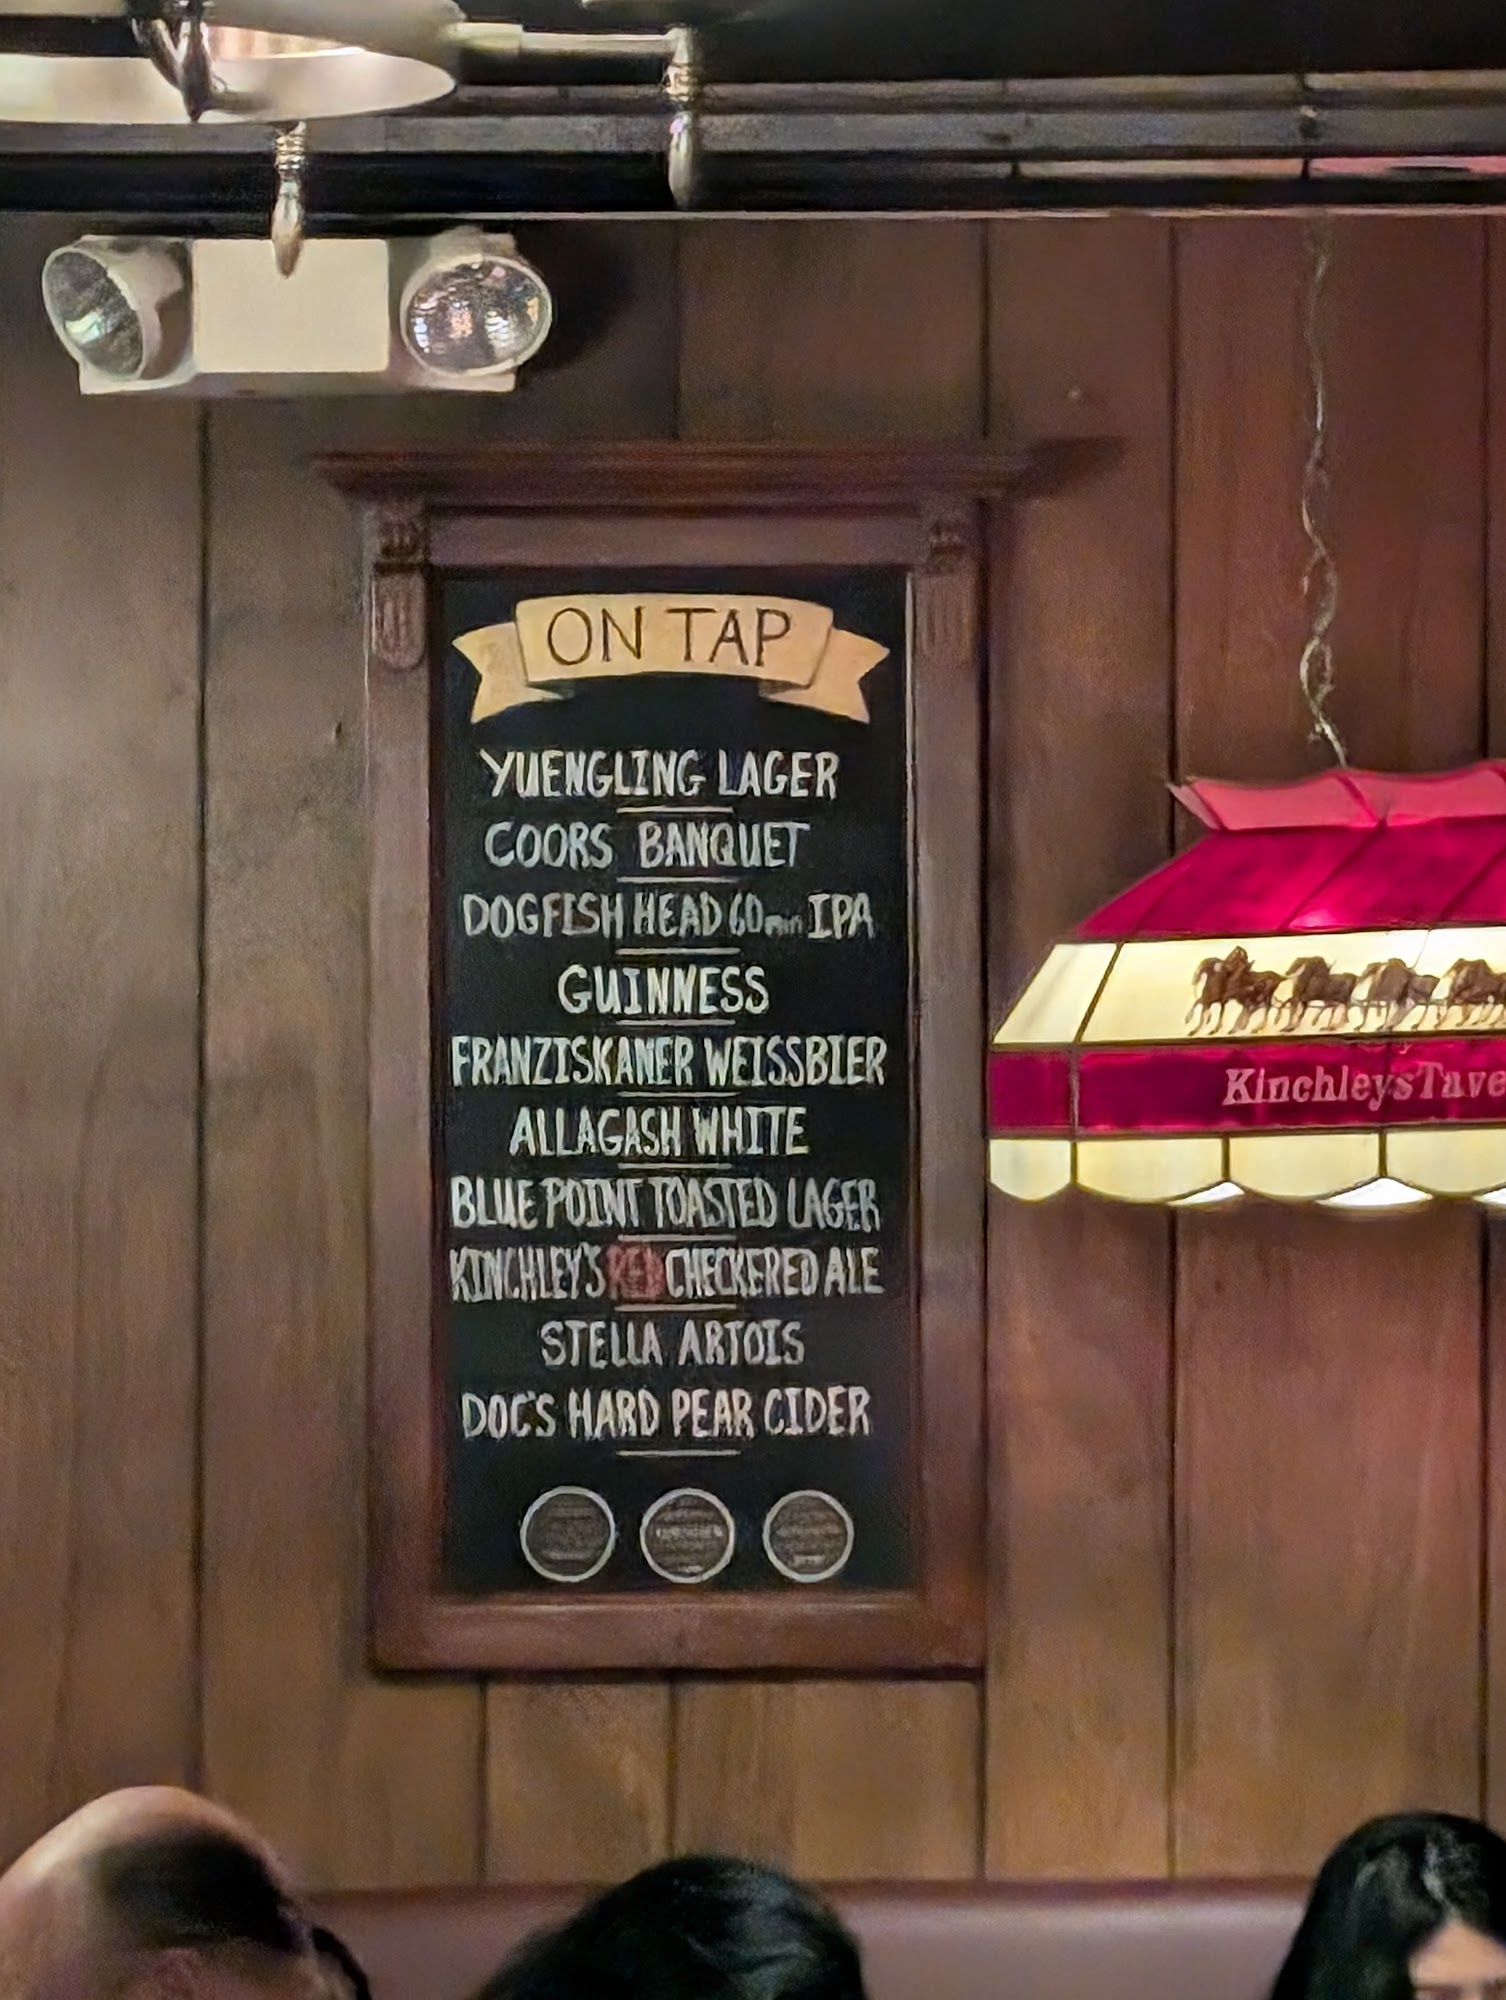 ON TAP
YUENGLING LAGER
COORS BANQUET
DOGFISH HEAD 60min IPA
GUINNESS
FRANZISKANER WEISSBIER
ALLAGASH WHITE
BLUE POINT TOASTED LAGER
KINCHLEY'S RED CHECKERED ALE
STELLA ARTOIS
DOC'S HARD PEAR CIDER
KinchleysTave